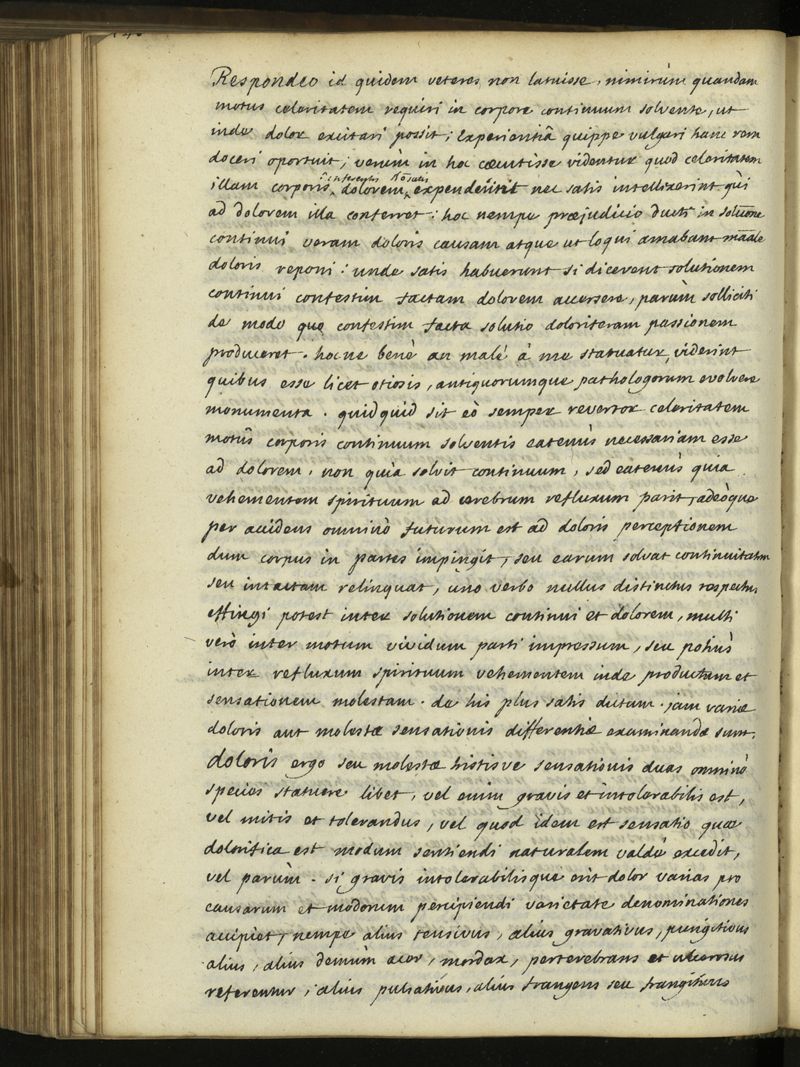 Respondeo id quidem veteres non latuisse, nimirùm quandam
motus celeritatem requiri in corpore continuum solvente, ut
inde dolor excitari possit; Experientiâ quippe vulgari hanc rem
doceri oportuit; verùm in hoc cæcutisse videntur quod celeritatem
illam corporis dolorem nec satis intellexerint qui
ad dolorem illa conferret: hoc nempe præjudicio ducti in solutione
continui veram doloris causam atque ut loqui amabant
doloris reponi: unde satis habuerunt si dicerent solutionem
continui confestim factam dolorem accersere, parùm solliciti
de modo quo confestim facta solutio doloriferam passionem
produceret. hocne benè an malè à me statuatur, viderint
quibus esse licet otiosis, antiquorumque pathologorum evolvere
monumenta. quidquid sit eò semper revertor celeritatem
motûs corporis continuum solventis eatenùs necessariam esse
ad dolorem, non quia solvit continuum, sed eatenùs quia
vehementem spirituum ad cerebrum refluxum parit, adeòque
per accidens omninò futurum est ad doloris perceptionem
dum corpus in partes impingit, seu earum solvat continuitatem
seu intactam relinquat, uno verbo nullus distinctus respectus
effingi potest inter solutionem continui et dolorem, multi
verò inter motum vividum parti impressum, seu potiùs
inter refluxum spirituum vehementem inde productum et
sensationem molestam. de his plus satis dictum. jam variæ
doloris aut molestæ sensationis differentiæ examinandæ sunt.
doloris ergo seu molestæ tristisve sensationis duas omninò
species statuere libet, vel enim gravis et intolerabilis est,
vel mitis et tolerandus, vel quod idem est sensatio quæ
dolorifica est modum sentiendi naturalem valdè excedit,
vel parùm. si gravis intolerabilisque erit dolor varias pro
causarum et modorum percipiendi varietate denominationes
accipiet, nempe alius tensivus, alius gravativus, pungitivus
alius, alius demùm acer, mordax, perterebrans et ulcerosus
referentur, alius pulsativus, alius frangens seu frangitivus